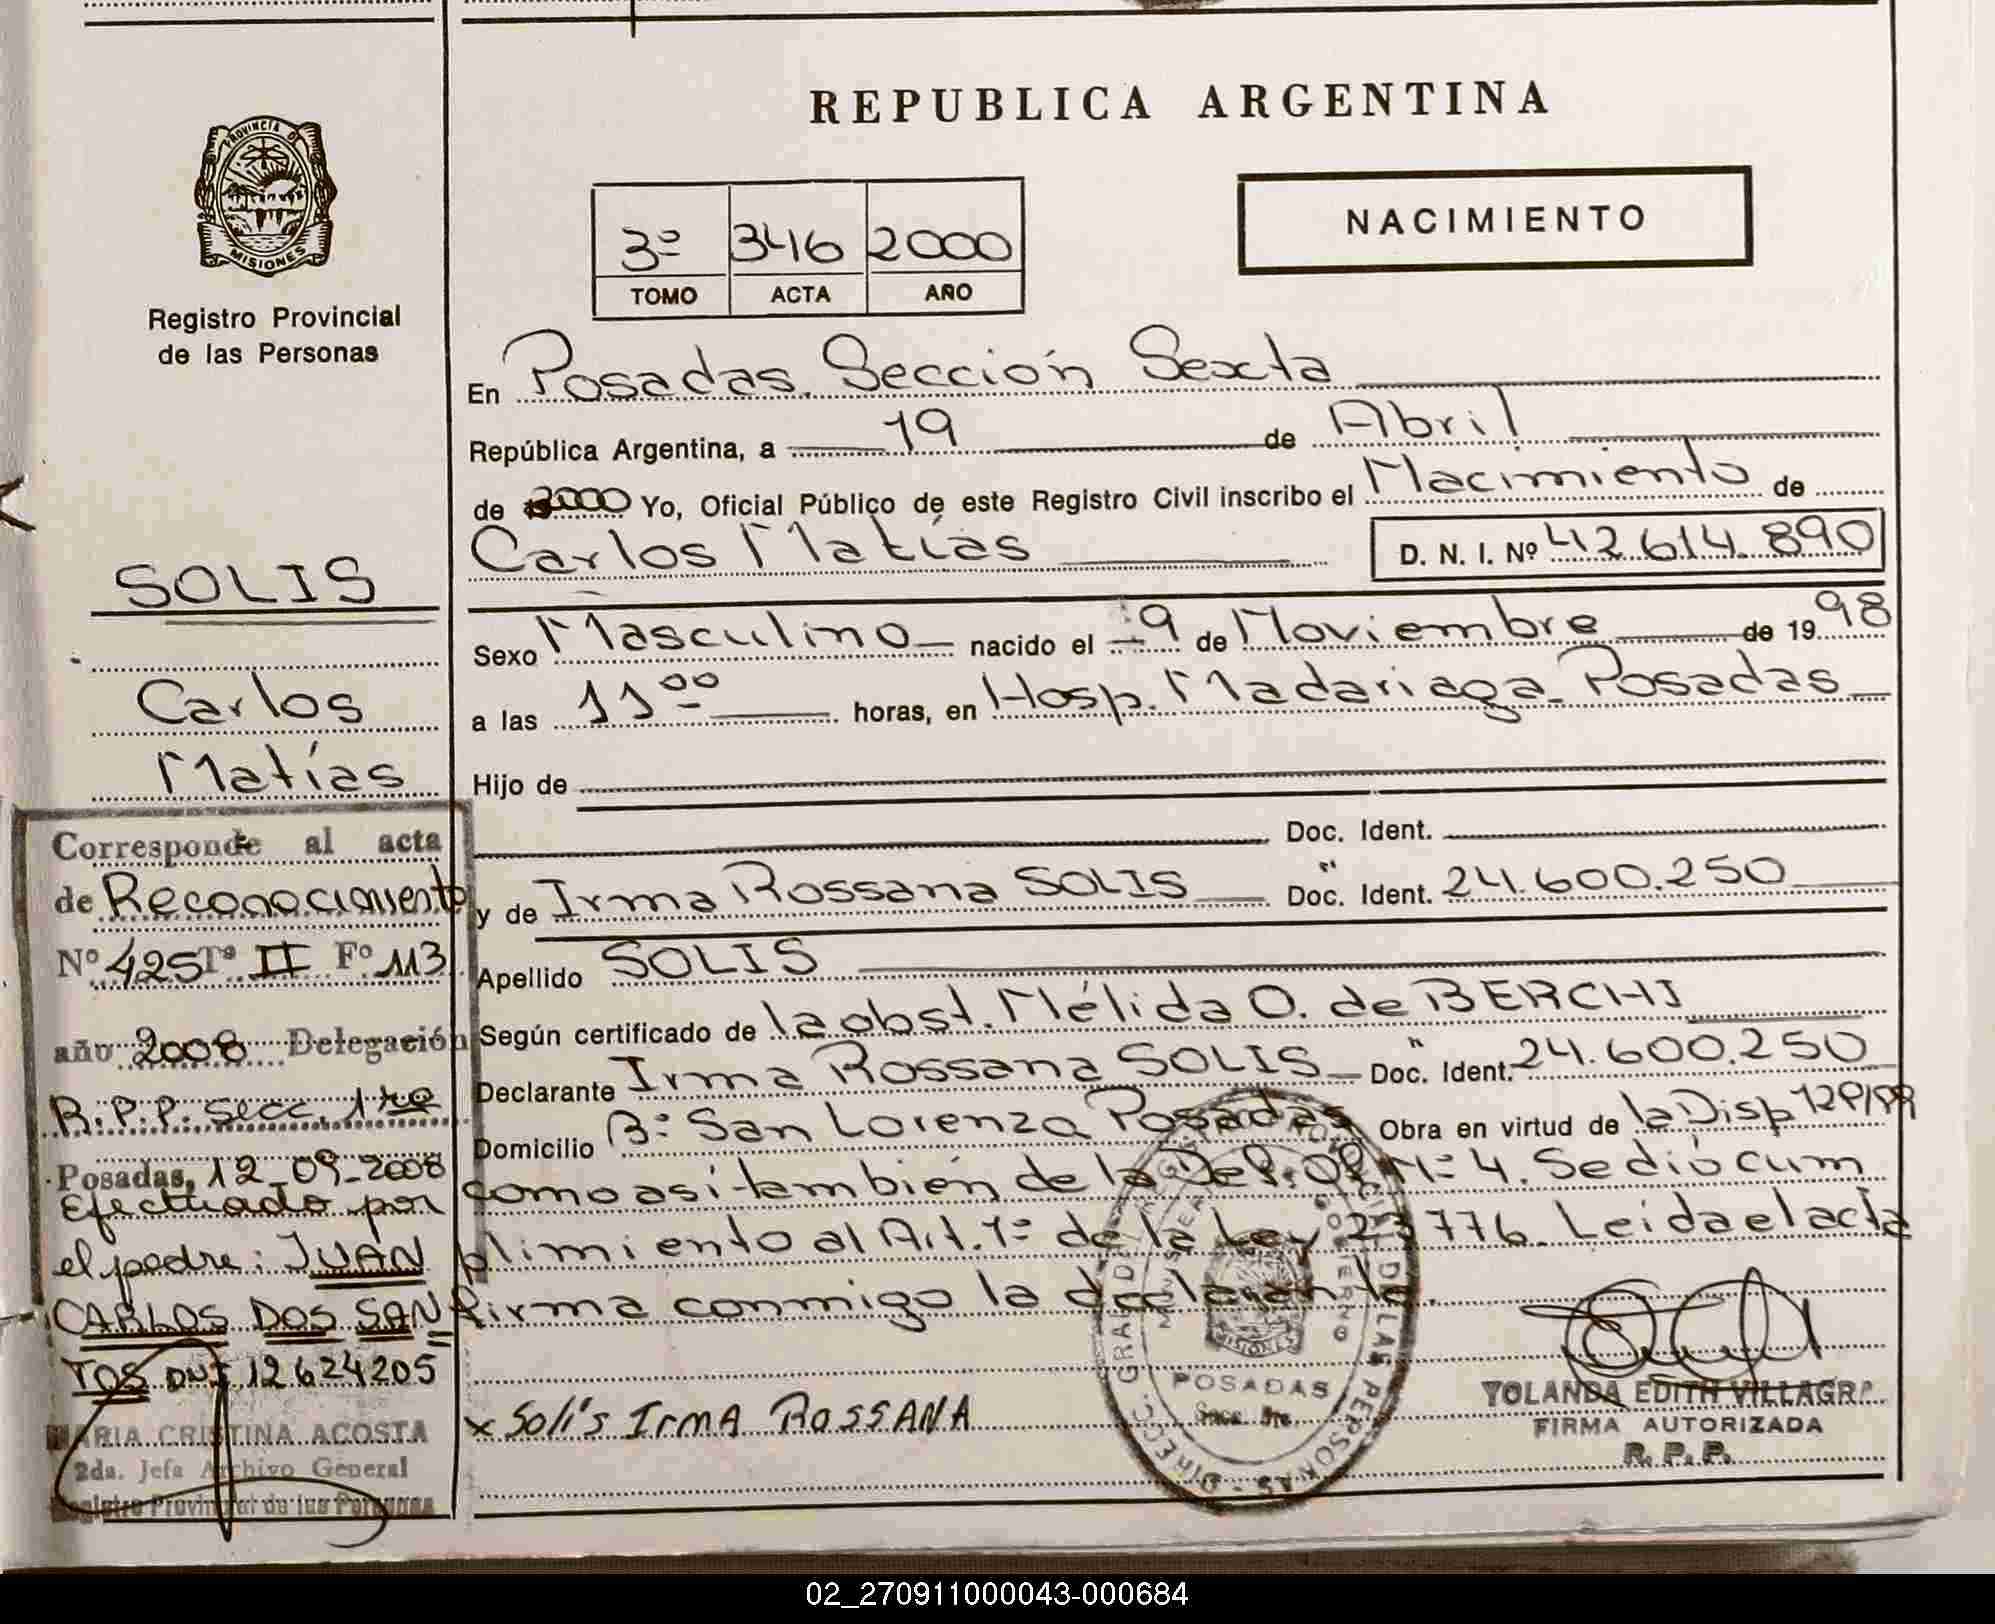 REPUBLICA ARGENTINA
PROVINCIA DE
MISIONES
Registro Provincial
de las Personas
3º 346 2000
TOMO ACTA AÑO
NACIMIENTO
En Posadas. Sección Sexta
República Argentina, a 19 de Abril
de 2000 Yo, Oficial Público de este Registro Civil inscribo el Nacimiento de
Carlos Matías D. N. I. Nº 42.614.890
Sexo Masculino nacido el 9 de Noviembre de 1998
a las 11 00 horas, en Hosp. Madariaga - Posadas
Hijo de
Doc. Ident.
y de Irma Rossana SOLIS Doc. Ident. 24.600.250
Apellido SOLIS
Según certificado de la obst. Nélida O. de BERCHI
Declarante Irma Rossana SOLIS Doc. Ident. 24.600.250
Domicilio Bº San Lorenzo Posadas Obra en virtud de la Disp
como así también de la Nº 4. Se dió cum
plimiento al Art. 1º de la Ley 23776. Leída el acta
firma conmigo la declarante.
x Solís IrmA ROSSANA
YOLANDA EDITH VILLAGRA
FIRMA AUTORIZADA
R. P. P.
SOLIS
Carlos
Matías
Corresponde al acta
de Reconocimiento
Nº 425 Tº II Fº 113
año 2008 Delegación
R.P.P. secc. 1ra
Posadas, 12-09-2008
Efectuado por
el padre: JUAN
CARLOS DOS SAN
TOS DNI 12624205
MARIA CRISTINA ACOSTA
2da. Jefa Archivo General
Registro Provincial de las Personas
DE LAS PERSONAS
MISIONES
POSADAS
02_270911000043-000684